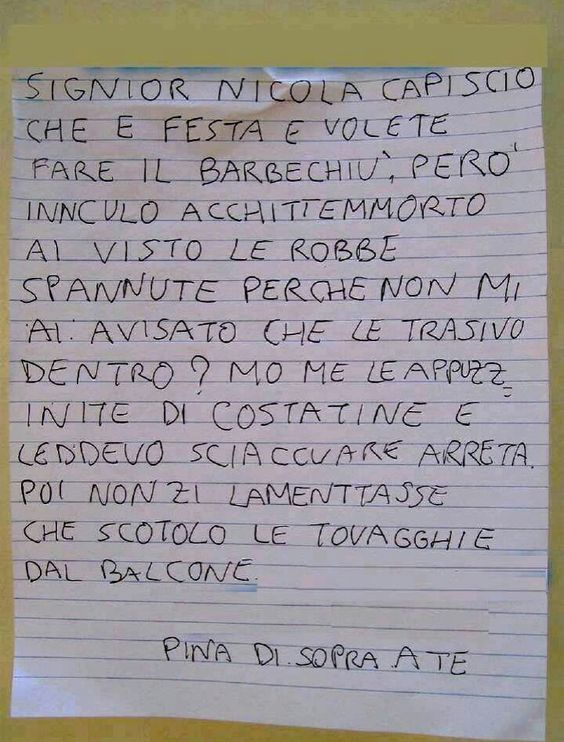 SIGNIOR NICOLA CAPISCIO
CHE E FESTA E VOLETE
FARE IL BARBECHIÙ, PERO'
INNCULO ACCHITTEMMORTO
AI VISTO LE ROBBE
SPANNUTE PERCHE NON MI
AI AVISATO CHE LE TRASIVO
DENTRO? MO ME LE APPUZZ
INITE DI COSTATINE E
LEDDEVO SCIACCUARE ARRETA.
POI NON ZI LAMENTTASSE
CHE SCOTOLO LE TOVAGGHIE
DAL BALCONE.
PINA DI.SOPRA A TE